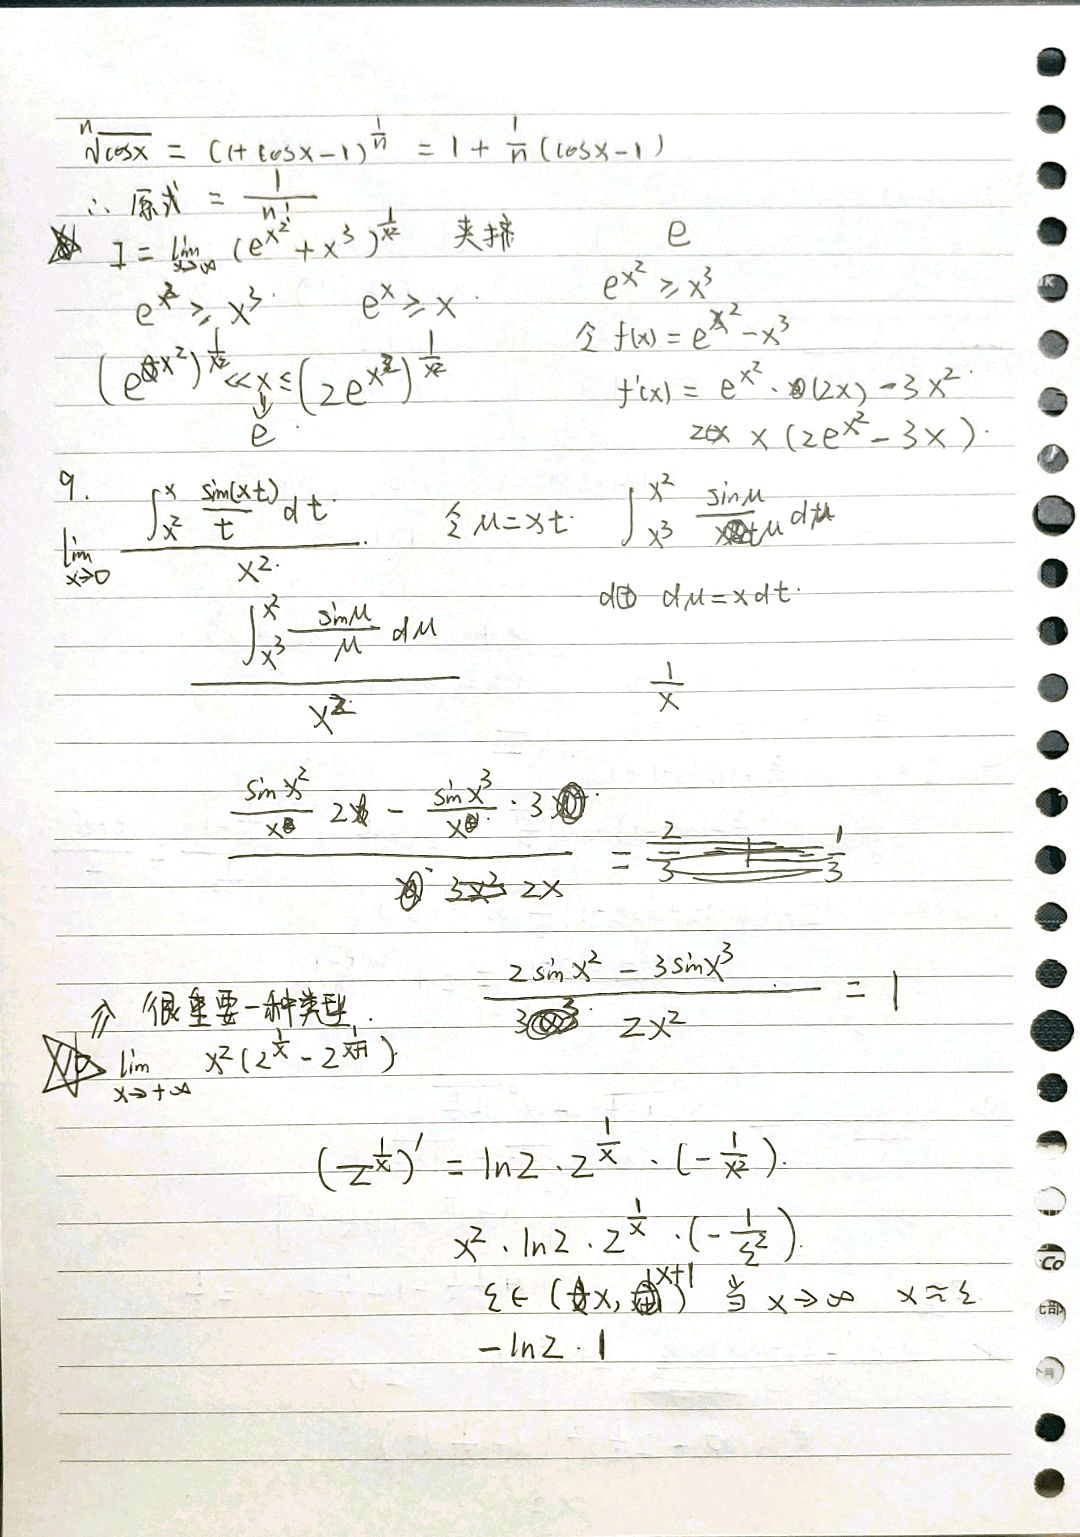 ⁿ√cosx = (1+cosx-1)^{1/n} = 1 + 1/n (cosx-1)
∴ 原式 = 1/n!
I = lim_{x→∞} (e^{x²} + x³)^{1/x²} 夹挤 e
e^{x²} ≥ x³ e^x ≥ x e^{x²} ≥ x³
令 f(x) = e^{x²} - x³
(e^{x²})^{1/x²} ≤ x ≤ (2e^{x²})^{1/x²} f'(x) = e^{x²} · (2x) - 3x²
e x (2e^{x²} - 3x)
9. lim_{x→0} ∫_{x²}^{x} sin(xt)/t dt / x² 令 μ = xt ∫_{x³}^{x²} sinμ/μ dμ
dμ = xdt
∫_{x³}^{x²} sinμ/μ dμ / x² 1/x
(sinx²/x 2 - sinx³/x · 3) / 2x =
(2sinx² - 3sinx³) / 2x² = 1
⇑ 很重要一种类型.
10 lim_{x→+∞} x²(2^{1/x} - 2^{1/(x+1)})
(2^{1/x})' = ln2 · 2^{1/x} · (-1/x²).
x² · ln2 · 2^{1/x} · (-1/ξ²).
ξ ∈ (x, x+1) 当 x→∞ x≈ξ
-ln2 · 1